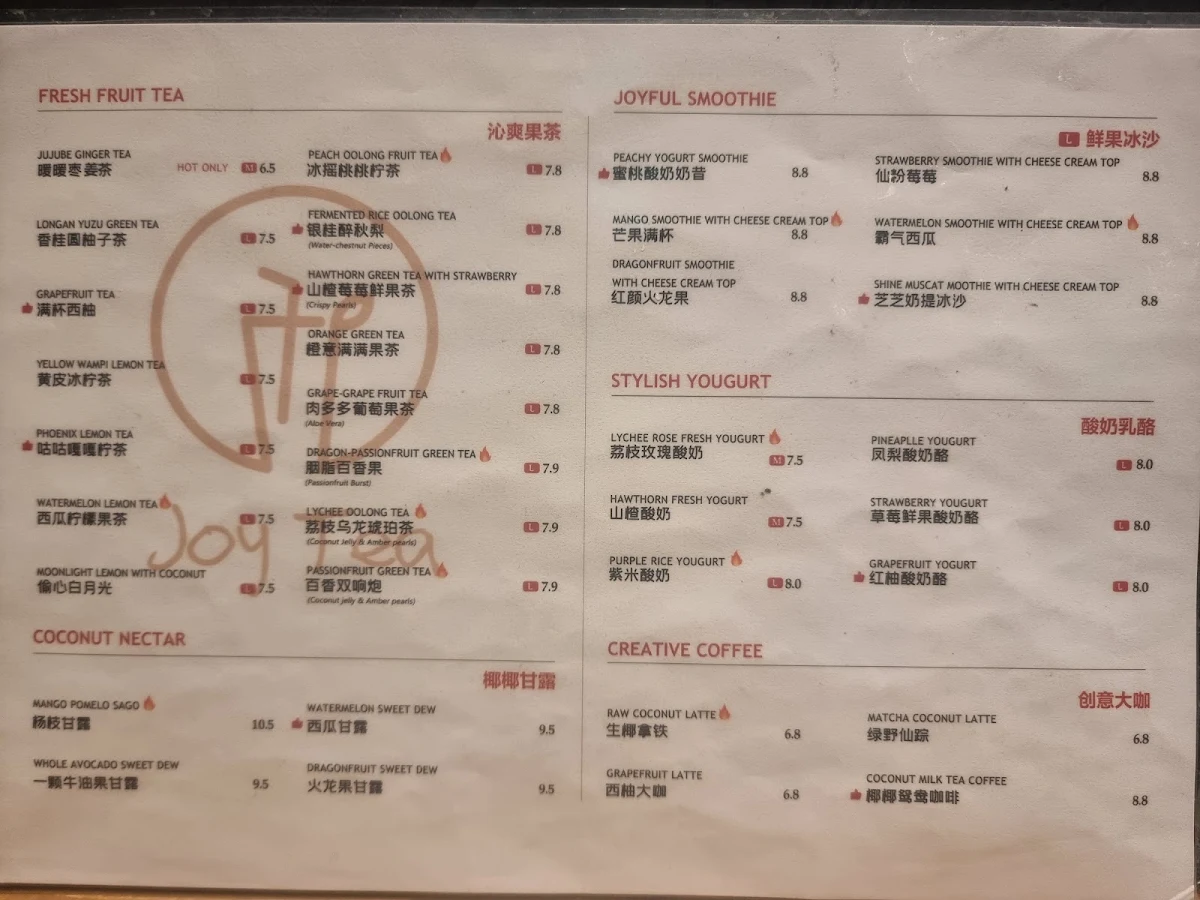 FRESH FRUIT TEA
沁爽果茶
JUJUBE GINGER TEA
暖暖枣姜茶 HOT ONLY M 6.5
LONGAN YUZU GREEN TEA
香桂圆柚子茶 L 7.5
GRAPEFRUIT TEA
满杯西柚 L 7.5
YELLOW WAMPI LEMON TEA
黄皮冰柠茶 L 7.5
PHOENIX LEMON TEA
咕咕嘎嘎柠茶 L 7.5
WATERMELON LEMON TEA
西瓜柠檬果茶 L 7.5
MOONLIGHT LEMON WITH COCONUT
偷心白月光 L 7.5
PEACH OOLONG FRUIT TEA
冰摇桃桃柠茶 L 7.8
FERMENTED RICE OOLONG TEA
银桂醉秋梨 L 7.8
(Water-chestnut Pieces)
HAWTHORN GREEN TEA WITH STRAWBERRY
山楂莓莓鲜果茶 L 7.8
(Crispy Pearls)
ORANGE GREEN TEA
橙意满满果茶 L 7.8
GRAPE-GRAPE FRUIT TEA
肉多多葡萄果茶 L 7.8
(Aloe Vera)
DRAGON-PASSIONFRUIT GREEN TEA
胭脂百香果 L 7.9
(Passionfruit Burst)
LYCHEE OOLONG TEA
荔枝乌龙琥珀茶 L 7.9
(Coconut Jelly & Amber pearls)
PASSIONFRUIT GREEN TEA
百香双响炮 L 7.9
(Coconut jelly & Amber pearls)
Joy Tea
COCONUT NECTAR
椰椰甘露
MANGO POMELO SAGO
杨枝甘露 10.5
WHOLE AVOCADO SWEET DEW
一颗牛油果甘露 9.5
WATERMELON SWEET DEW
西瓜甘露 9.5
DRAGONFRUIT SWEET DEW
火龙果甘露 9.5
JOYFUL SMOOTHIE
L 鲜果冰沙
PEACHY YOGURT SMOOTHIE
蜜桃酸奶奶昔 8.8
MANGO SMOOTHIE WITH CHEESE CREAM TOP
芒果满杯 8.8
DRAGONFRUIT SMOOTHIE
WITH CHEESE CREAM TOP
红颜火龙果 8.8
STRAWBERRY SMOOTHIE WITH CHEESE CREAM TOP
仙粉莓莓 8.8
WATERMELON SMOOTHIE WITH CHEESE CREAM TOP
霸气西瓜 8.8
SHINE MUSCAT MOOTHIE WITH CHEESE CREAM TOP
芝芝奶提冰沙 8.8
STYLISH YOUGURT
酸奶乳酪
LYCHEE ROSE FRESH YOUGURT
荔枝玫瑰酸奶 M 7.5
HAWTHORN FRESH YOGURT
山楂酸奶 M 7.5
PURPLE RICE YOUGURT
紫米酸奶 L 8.0
PINEAPLLE YOUGURT
凤梨酸奶酪 L 8.0
STRAWBERRY YOUGURT
草莓鲜果酸奶酪 L 8.0
GRAPEFRUIT YOGURT
红柚酸奶酪 L 8.0
CREATIVE COFFEE
创意大咖
RAW COCONUT LATTE
生椰拿铁 6.8
GRAPEFRUIT LATTE
西柚大咖 6.8
MATCHA COCONUT LATTE
绿野仙踪 6.8
COCONUT MILK TEA COFFEE
椰椰鸳鸯咖啡 8.8